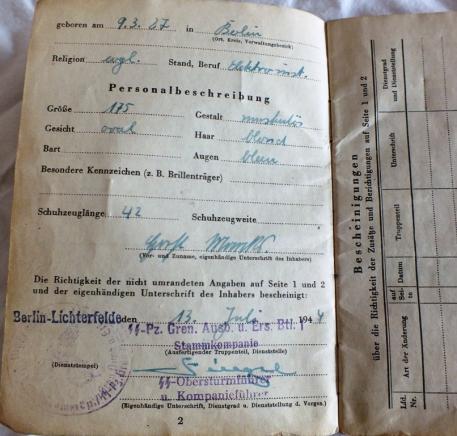 geboren am 9.3.07 in Berlin
(Ort, Kreis, Verwaltungsbezirk)
Religion evgl. Stand, Beruf Elektro inst.
Personalbeschreibung
Größe 175 Gestalt muskulös
Gesicht oval Haar blond
Bart Augen blau
Besondere Kennzeichen (z. B. Brillenträger)
Schuhzeuglänge 42 Schuhzeugweite
Horst
(Vor- und Zuname, eigenhändige Unterschrift des Inhabers)
Die Richtigkeit der nicht umrandeten Angaben auf Seite 1 und 2
und der eigenhändigen Unterschrift des Inhabers bescheinigt:
Berlin-Lichterfelde den 13. Juli 1944
SS-Pz. Gren. Ausb. u. Ers. Btl. 1
Stammkompanie
(Ausfertigender Truppenteil, Dienststelle)
(Dienststempel)
SS-Obersturmführer
u. Kompanieführer
(Eigenhändige Unterschrift, Dienstgrad u. Dienststellung d. Vorges.)
2
Bescheinigungen
über die Richtigkeit der Zusätze und Berichtigungen auf Seite 1 und 2
Lfd. Nr.
Art der Änderung
auf Seite
Datum
Truppenteil
Unterschrift
Dienstgrad und Dienststellung